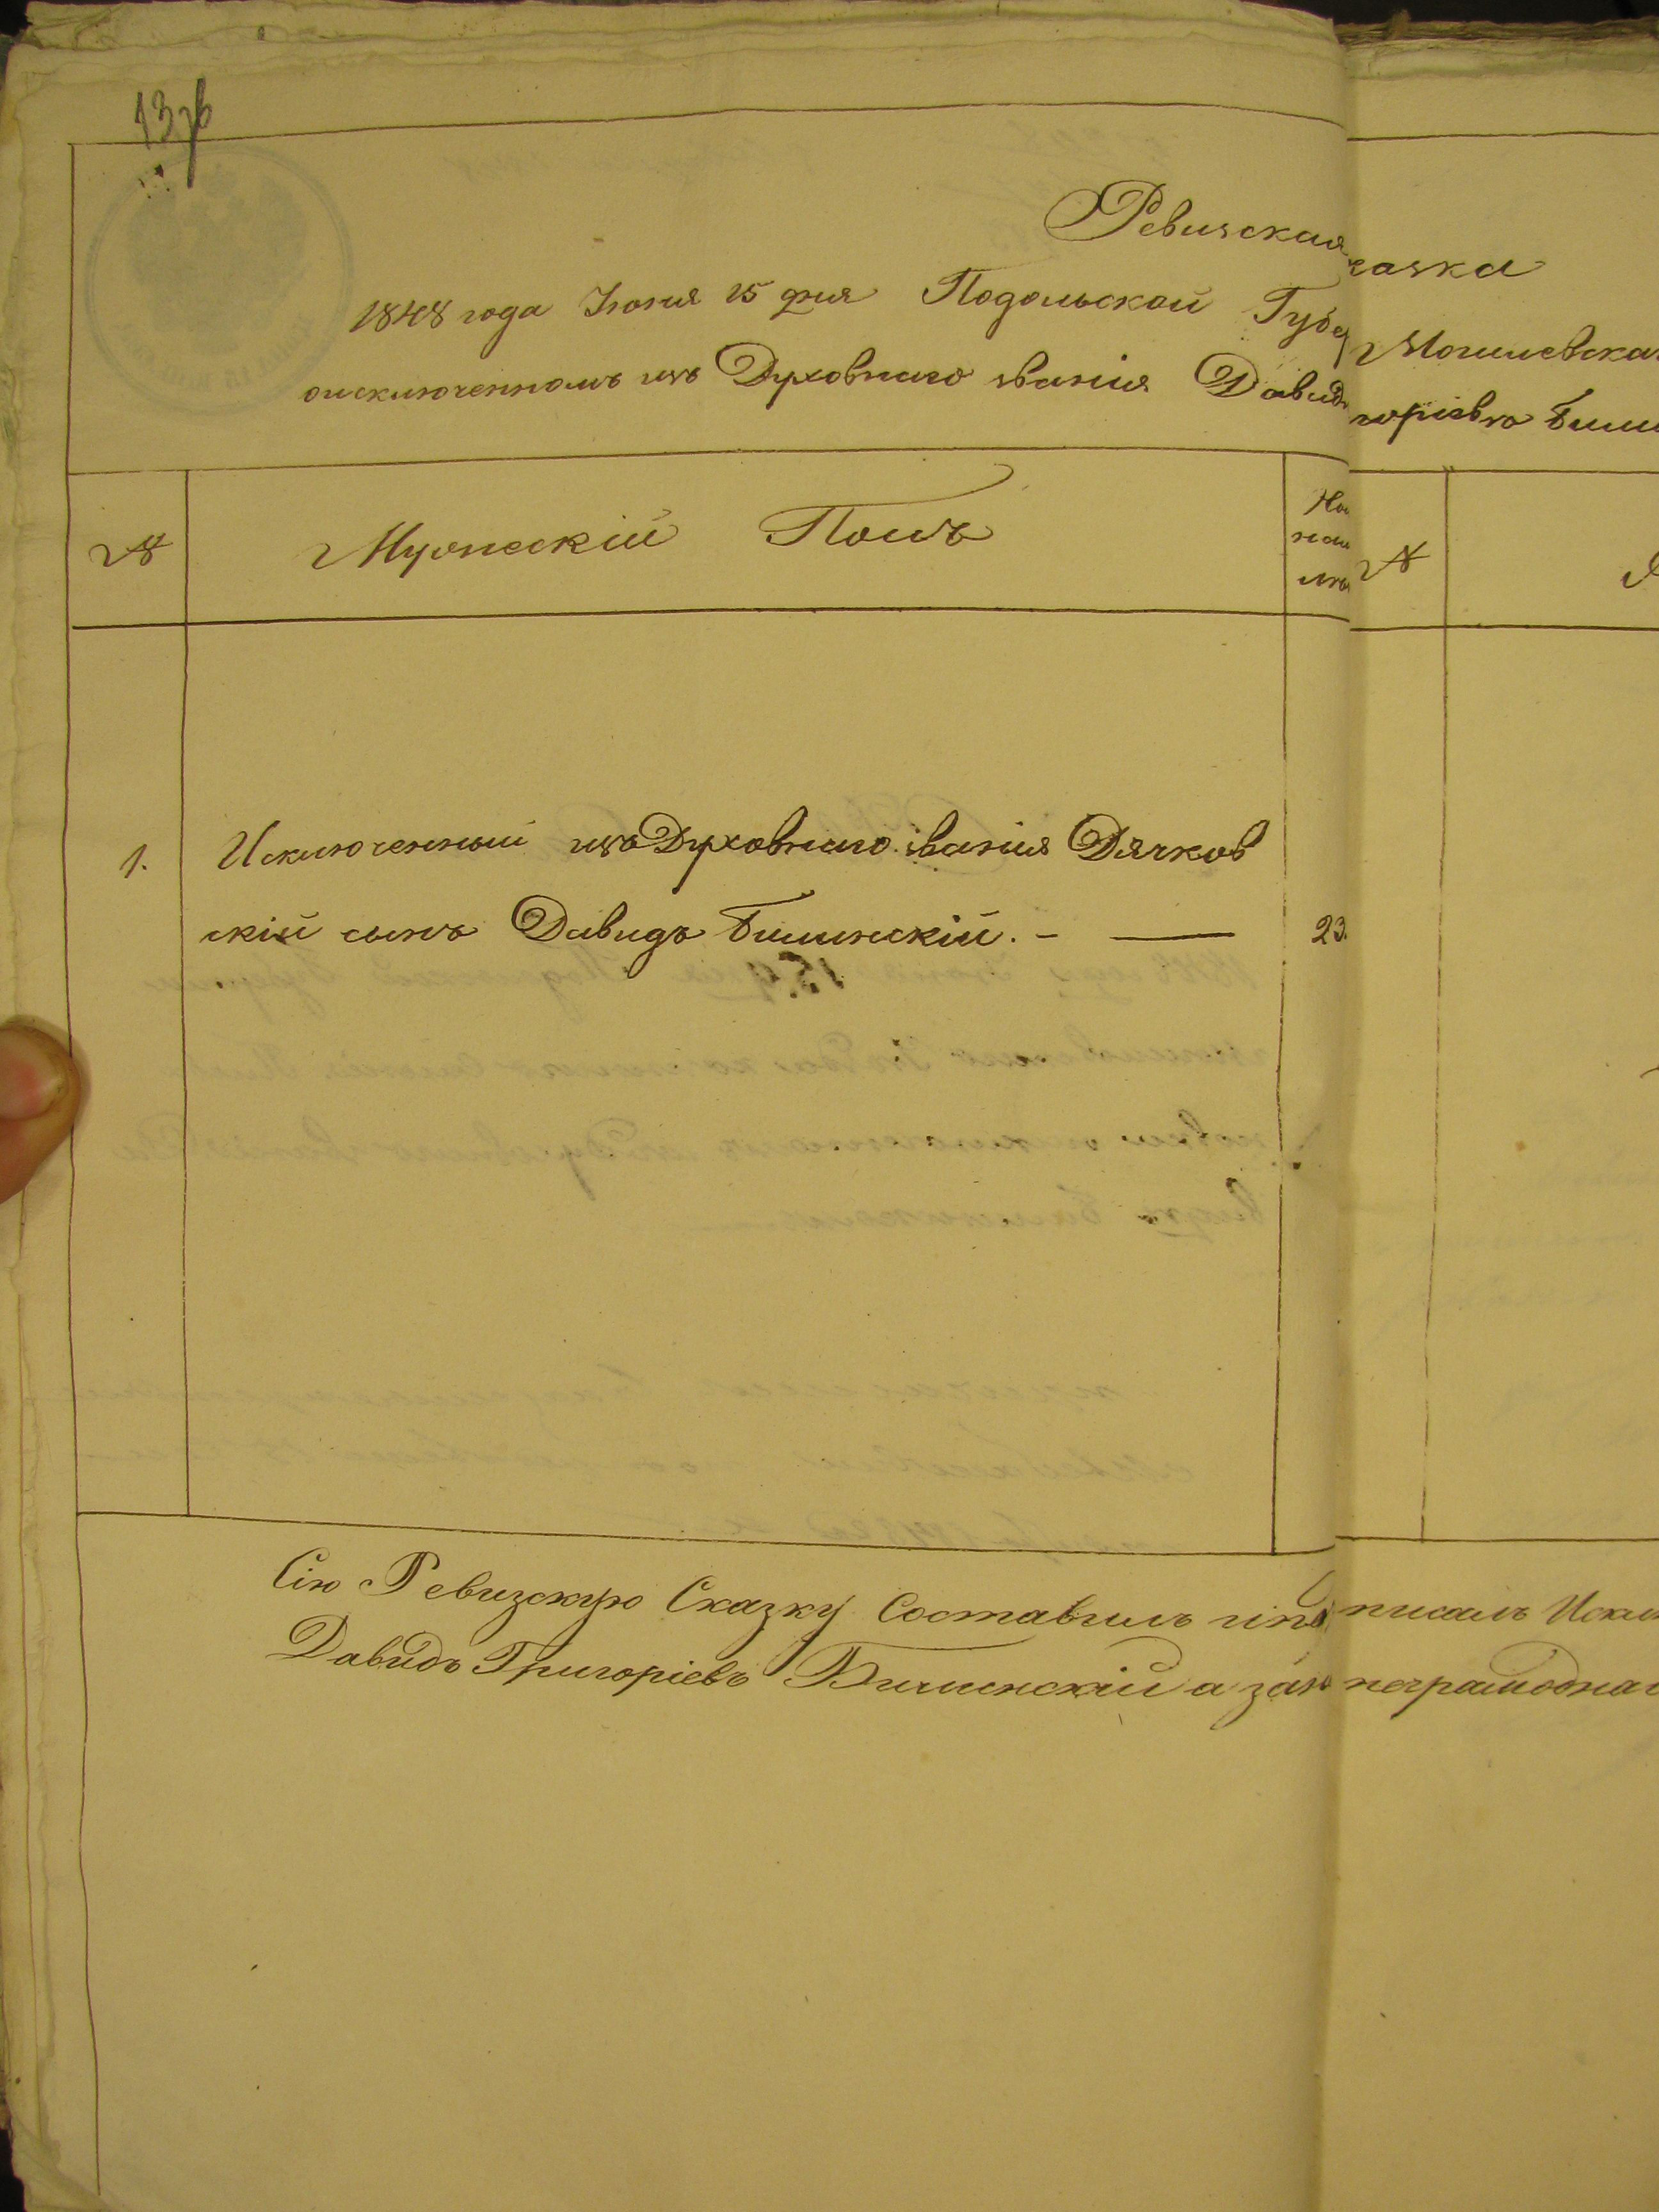 13 об
Ревизская сказка
1848 года Іюня 15 дня Подольской Губе Могилевска
оисключенномъ изъ Духовнаго званія Давид горіевѣ Били
№ Мужескій Полъ На №
1. Исключенный изъ Духовнаго званія Дячков
скій сынъ Давидъ Билинскій. — 23.
Сію Ревизскую Сказку Составилъ ипод писалъ Исклю
Давидъ Григоріевъ Билинскій а за не неграмотнаг